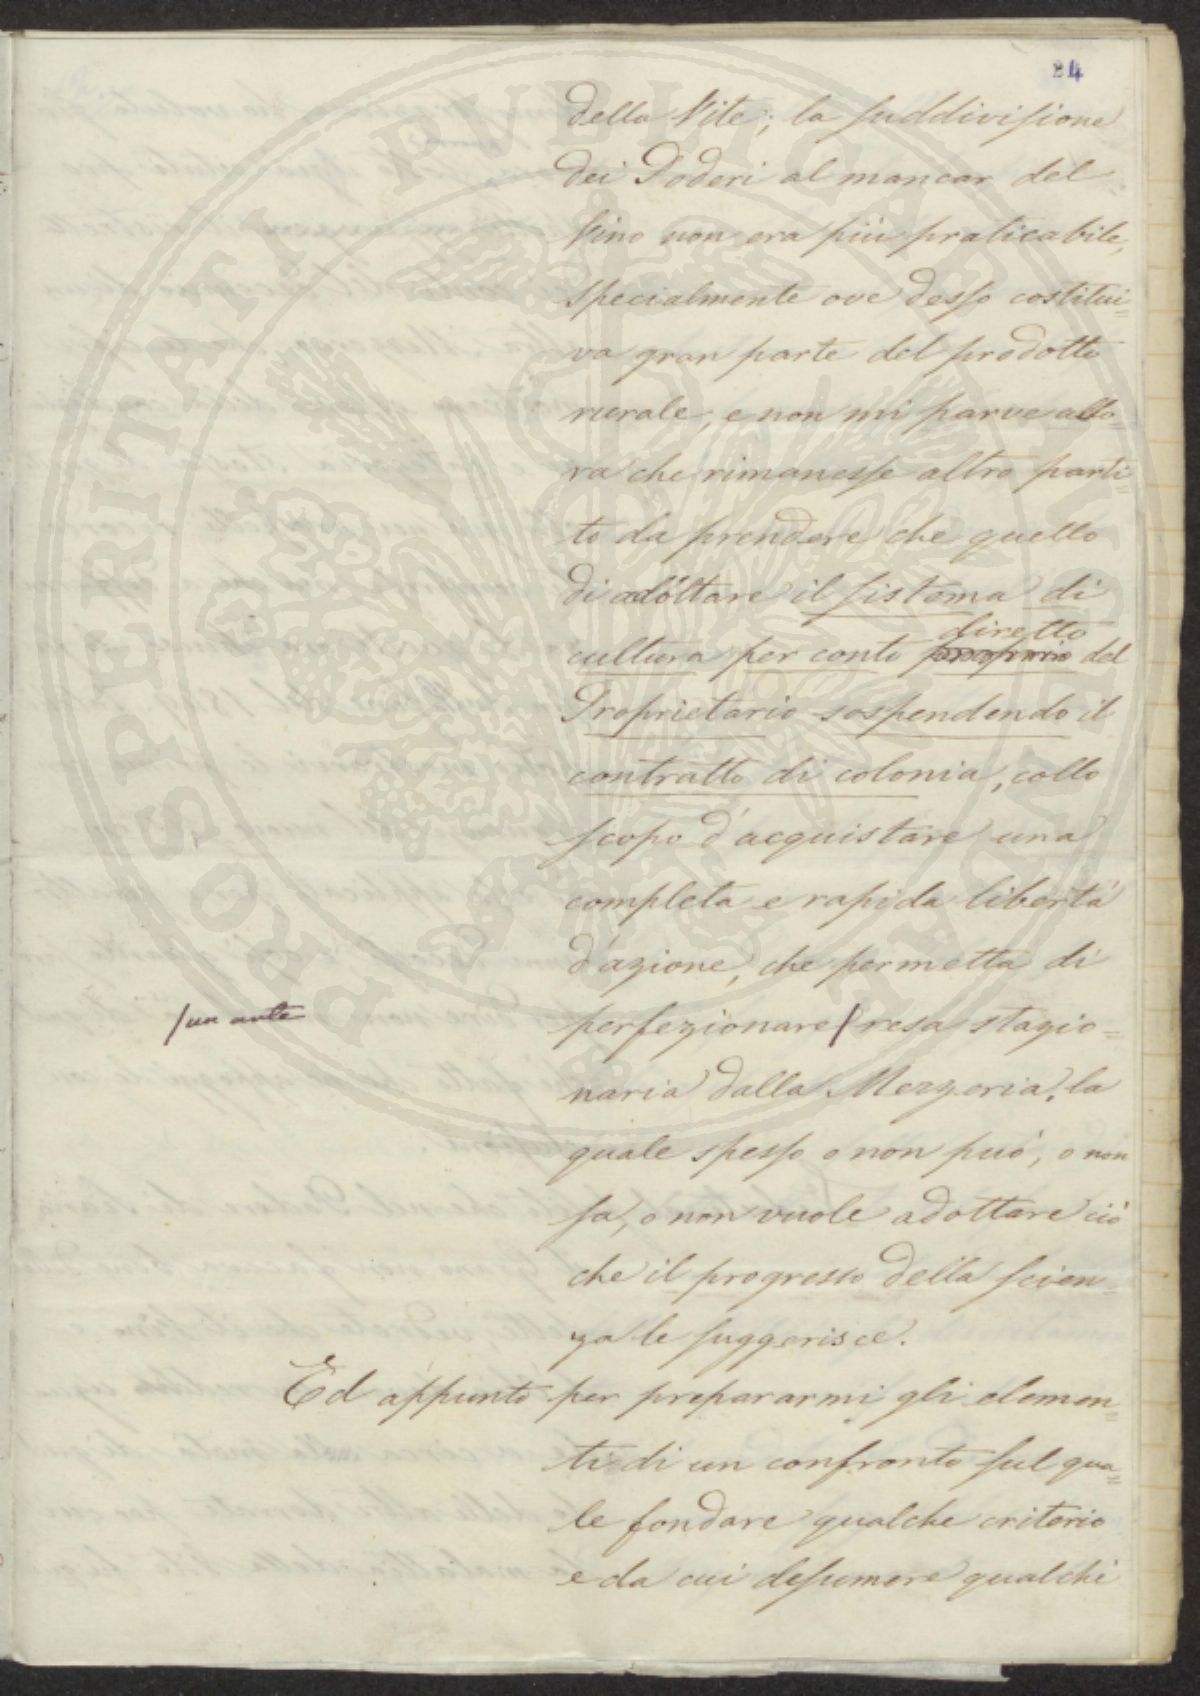 24
della Vite; la suddivisione
dei Poderi al mancar del
Vino non era più praticabile,
specialmente ove desso costitui=
va gran parte del prodotto
rurale, e non mi parve allo=
ra che rimanesse altro parti=
to da prendere che quello
di adottare il sistema di
diretto
cultura per conto proprio del
Proprietario sospendendo il
contratto di colonia, collo
scopo d'acquistare una
completa e rapida libertà
d'azione, che permetta di
/un arte
perfezionare/ resa stagio=
naria dalla Mezzeria, la
quale spesso o non può, o non
sa, o non vuole adottare ciò
che il progresso della scien=
za le suggerisce.
Ed appunto per prepararmi gli elemen=
ti di un confronto sul qua=
le fondare qualche criterio
e da cui desumere qualche
PROSPERITATI PUBLICAE